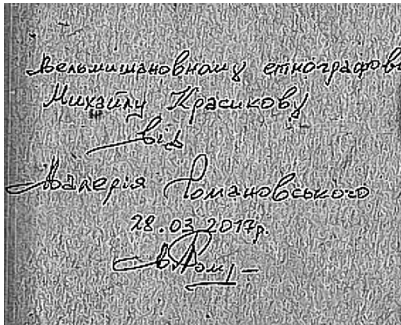 Вельмишановному етнографові
Михайлу Красикову
від
Валерія Романовського
28.03.2017р.